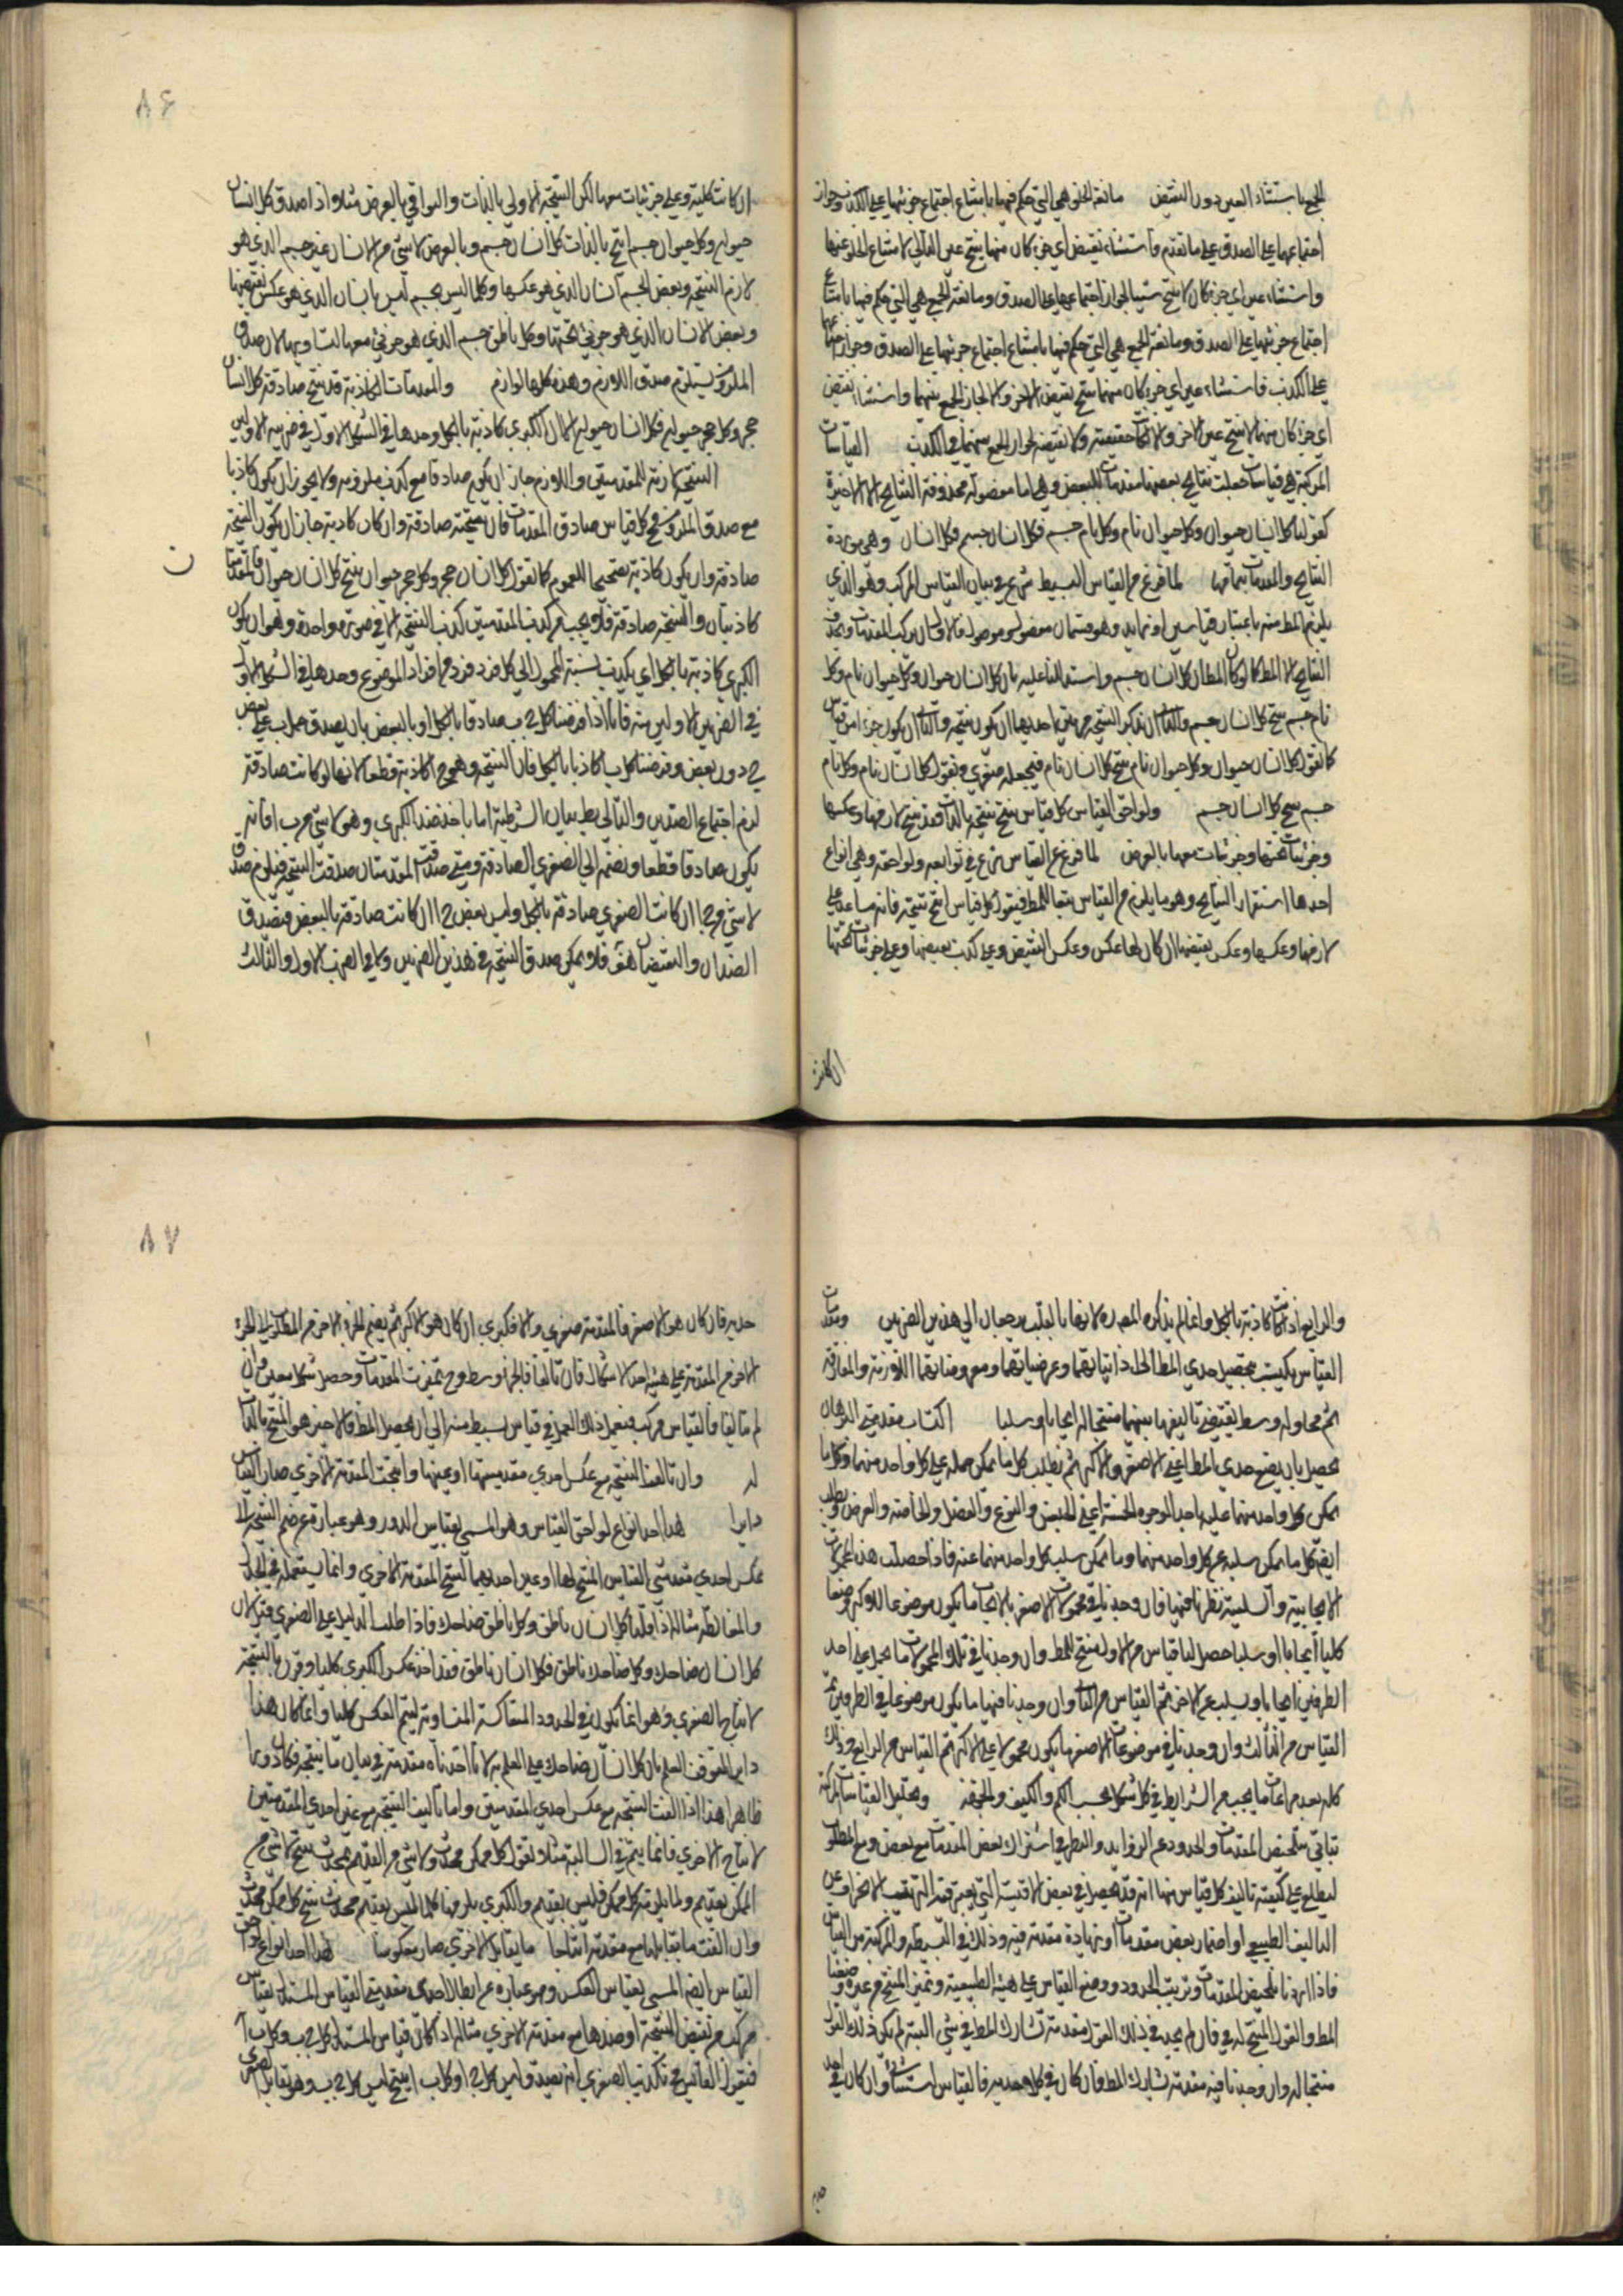 الجمع باستثناء العين دون النقيض مانعة الخلو هي التي حكم فيها بامتناع اجتماع جزئيها على الكذب وجواز
اجتماعهما على الصدق على ما تقدم واستثناء نقيض اي جزء كان منهما ينتج عين التالي لامتناع الخلو عنهما
واستثناء عين اي جزء كان لا ينتج شيئا لجواز اجتماعهما على الصدق ومانعة الجمع هي التي حكم فيها بامتناع
اجتماع جزئيها على الصدق ومانعة الجمع هي التي حكم فيها بامتناع اجتماع جزئيها على الصدق وجواز اجتماعهما
على الكذب فاستثناء عين اي جزء كان منهما ينتج نقيض الاخر والا لجاز الجمع بينهما واستثناء نقيض
اي جزء كان منهما لا ينتج عين الاخر والا لكانت حقيقية ولا نقيضه لجواز الجمع بينهما في الكذب القياسات
المركبة هي قياسات جعلت نتائج بعضها مقدمات للبعض وهي اما مفصولة محذوفة النتائج الا الاخيرة
كقولنا كل انسان حيوان وكل حيوان نام وكل نام جسم فكل انسان جسم فكل انسان وهي موردة
النتائج والمقدمات بتمامها لما فرغ من القياس البسيط شرع في بيان القياس المركب وهو الذي
يلتئم المط منه باعتبار قياسين او نهايد وهو قسمان مفصول وموصول فالاول ان يركب المقدمات ويحذف
النتايج الا المط كما لو كان المط ان كل انسان جسم واستدللنا عليه بان كل انسان حيوان وكل حيوان نام وكل
نام جسم ينتج كل انسان جسم والثاني ان تذكر النتيجة مرتين احديهما ان يكون نتيجة والثاني ان يكون جزءا من قياس
كما تقول كل انسان حيوان وكل حيوان نام ينتج كل انسان نام فتجعله صغرى ونقول كل انسان نام وكل نام
جسم ينتج كل انسان جسم ولواحق القياس كل قياس ينتج نتيجة بالذات فقد ينتج لازمها وعكسها
وجزئيات تحتها وجزئيات معها بالعرض لما فرغ عن القياس شرع في توابعه ولواحقه وهي انواع
احدها استقرار النتايج وهو ما يلزم من القياس بتبعا للمط فيقول كل قياس انتج نتيجة فانه ساعد على
لازمها وعكسها وعكس نقيضها ان كان لها عكس وعكس النقيض وعلى كذب نقيضها وعلى جزئيات تحتها
ان كانت
٨٦
ان كانت كلية وعلى جزئيات معها لكن النتيجة الاولى بالذات والبواقي بالعرض مثلا واذا صدق كل انسان
حيوان وكل حيوان جسم انتج بالذات كل انسان جسم وبالعرض لا شيء من الانسان غير جسم الذي هو
لازم النتيجة وبعض الجسم انسان الذي هو عكسها وكلما ليس بجسم ليس بانسان الذي هو عكس نقيضها
وبعض الانسان الذي هو جزئي تحتها وكل ناطق جسم الذي هو جزئي معها لتساويهما لان صدق
الملزوم يستلزم صدق اللازم وهذه كلها لوازم والمقدمات الكاذبة قد تنتج صادقة كل انسان
حجر وكل حجر حيوان فكل انسان حيوان الا ان الكبرى كاذبة بالكل وحدها في الشكل الاول في ضربيه الاولين
النتيجة لازمة للمقدمتين واللازم جاز ان يكون صادقا مع كذب ملزومه ولا يجوز ان يكون كاذبا
مع صدق الملزوم فح كل قياس صادق المقدمات فان نتيجته صادقة وان كان كاذبة جاز ان يكون النتيجة
صادقة وان يكون كاذبة تصحيحا للعموم كما تقول كل انسان حجر وكل حجر حيوان ينتج كل انسان حيوان فالمقدمتان
ن
كاذبتان والنتيجة صادقة فلا يجب من كذب المقدمتين كذب النتيجة الا في صورة واحدة وهو ان يكون
الكبرى كاذبة بالكل اي يكذب نسبة المحمول الى كل فرد فرد من افراد الموضوع وحدها في الشكل الاول
في الضربين الاولين منه فانا اذا فرضنا كل ج ب صادقا بالكل او بالبعض بان يصدق حمل ب على بعض
ج دون بعض وفرضنا كل ب ا كاذبا بالكل فان النتيجة وهو ج ا كاذبة قطعا لانها لو كانت صادقة
لزم اجتماع الضدين والتالي بط بيان الشرطية اما باخذ ضد الكبرى وهو لا شيء من ب ا فانه
يكون صادقا قطعا ونضمه الى الصغرى الصادقة ومتى صدقت المقدمتان صدقت النتيجة فيلزم صدق
لا شيء من ج ا ان كانت الصغرى صادقة بالكل وليس بعض ج ا ان كانت صادقة بالبعض فيصدق
الضدان والنقيضان هف فلا يمكن صدق النتيجة في هذين الضربين ولا في الضرب الاول والثالث
والرابع اذا كانت كاذبة بالكل وانما لم يذكره المص ره لانهما بالقلب يرجعان الى هذين الضربين ومقدمات
القياس يكتسب بتحصيل حدي المط لحل ذاتياتهما وعرضياتهما ومعروضاتهما اللازمة والمفارقة
ثم محاولة وسط يقتضي تاليفها بينهما منتجا له ايجابا او سلبا اكتساب مقدمتي البرهان
يحصل بان يضع حدي المط اعني الاصغر والاكبر ثم يطلب كل ما يمكن حمله على كل واحد منهما وكل ما
يمكن حمل كل واحد منهما عليه باحد الوجوه الخمسة اعني الجنس والنوع والفصل والخاصة والعرض ويطلب
ايض كل ما يمكن سلبه عن كل واحد منهما وما يمكن سلب كل واحد منهما عنه فاذا حصلت هذه المحمولات
الايجابية والسلبية نظرنا فيها فان وجدنا في محمولات الاصغر بالايجاب ما يكون موضوعا للاكبر وضعا
كليا ايجابا او سلبا حصل لنا قياس من الاول منتج للمط وان وجدنا في تلك المحمولات ما يحمل على احد
الطرفين ايجابا ويسلب عن الاخر تم القياس من الثاني وان وجدنا فيها ما يكون موضوعا في الطرفين تم
القياس من الثالث وان وجدنا في موضوعات الاصغر ما يكون محمولا على الاكبر تم القياس من الرابع وذلك
كله بعد مراعات ما يجب من الشرايط في كل شكل بحسب الكم والكيف والجهة وتحليل القياسات المركبة
يتاتي بتلخيص المقدمات والحدود عن الزوايد والنظر في اشتراك بعض المقدمات مع بعض ومع المطلوب
ليطلع على كيفية تاليف كل قياس منها انه قد يحصل في بعض الاقيسة التي يعتبر فيها الترتيب الانحراف عن
التاليف الطبيعي او اضمار بعض مقدمات او زيادة مقدمة فيه وذلك في البسيطة والمركبة من القياس
فاذا اردنا تلخيص المقدمات وترتيب الحدود ووضع القياس على هيئة الطبيعية وتميز المنتج من غيره وضعنا
المط والقول المنتج له في فان لم يجد في ذلك القول مقدمة تشارك المط في شيء البتة لم يكن ذلك القول
منتجا له وان وجدنا فيه مقدمة تشارك المط فان كان في كلا حديه فالقياس استثنائي وان كان في احد
حديه
٨٧
حديه فان كان هو الاصغر فالمقدمة صغرى والا فكبرى ان كان هو الاكبر ثم يضم الجزء الاخر من المطلوب الى الجزء
الاخر من المقدمة على هيئة احد الاشكال فان تالفا فالجزء وسط وح تميزت المقدمات وحصل شكل معين وان
لم يتالفا فالقياس مركب فنعمل ذلك العمل في قياس بسيط منه الى ان يحصل المط فالاخير هو المنتج بالذات
له وان تالفت النتيجة مع عكس احدي مقدمتيها او عينها وانتجت المقدمة الاخرى صار القياس
دايرا هذا احد انواع لواحق القياس وهو المسمى بقياس الدور وهو عبارة عن ضم النتيجة الى
عكس احدي مقدمتي القياس المنتج لها او عين احديهما لينتج المقدمة الاخرى وانما يستعمله في الجدل
والمغالطة مثاله اذا قلنا كل انسان ناطق وكل ناطق ضاحك فاذا طلب الدليل على الصغرى فتقول لان
كل انسان ضاحك وكل ضاحك ناطق فكل انسان ناطق فقد اخذ عكس الكبرى كليا وقرن بالنتيجة
لانتاج الصغرى وهو انما يكون في الحدود المتعاكسة المتساوية ليتم العكس كليا وانما كان هذا
دايرا لتوقف العلم بان كل انسان ضاحك على العلم به لانا اخذناه مقدمة في بيان ما ينتجه فكان دورا
ظاهرا هذا اذا الفت النتيجة مع عكس احدي المقدمتين واما تاليف النتيجة مع عين احدي المقدمتين
لانتاج الاخرى فانما يتم في السالبة مثلا نقول كل ممكن محدث ولا شيء من القديم محدث ينتج لا شيء من
الممكن بقديم ولما يلزمه كل ممكن فليس بقديم والكبرى يلزمها كلما ليس بقديم محدث ينتج كل ممكن محدث
وان الفت ما يقابلها مع مقدمة انتاجا ما يقابل الاخرى صار معكوسا هذا احد انواع لواحق
القياس ايض المسمى بقياس العكس وهو عباره عن ابطال احدى مقدمتي القياس المستدل بقياس
مركب من نقيض النتيجة او ضدها مع مقدمة الاخرى مثاله اذا كان قياس المستدل كل ج ب وكل ب ا
فيقول القايس في تكذيب الصغرى انه يصدق ليس كل ج ا وكل ب ا ينتج ليس كل ج ب وهو يقابل الصغرى